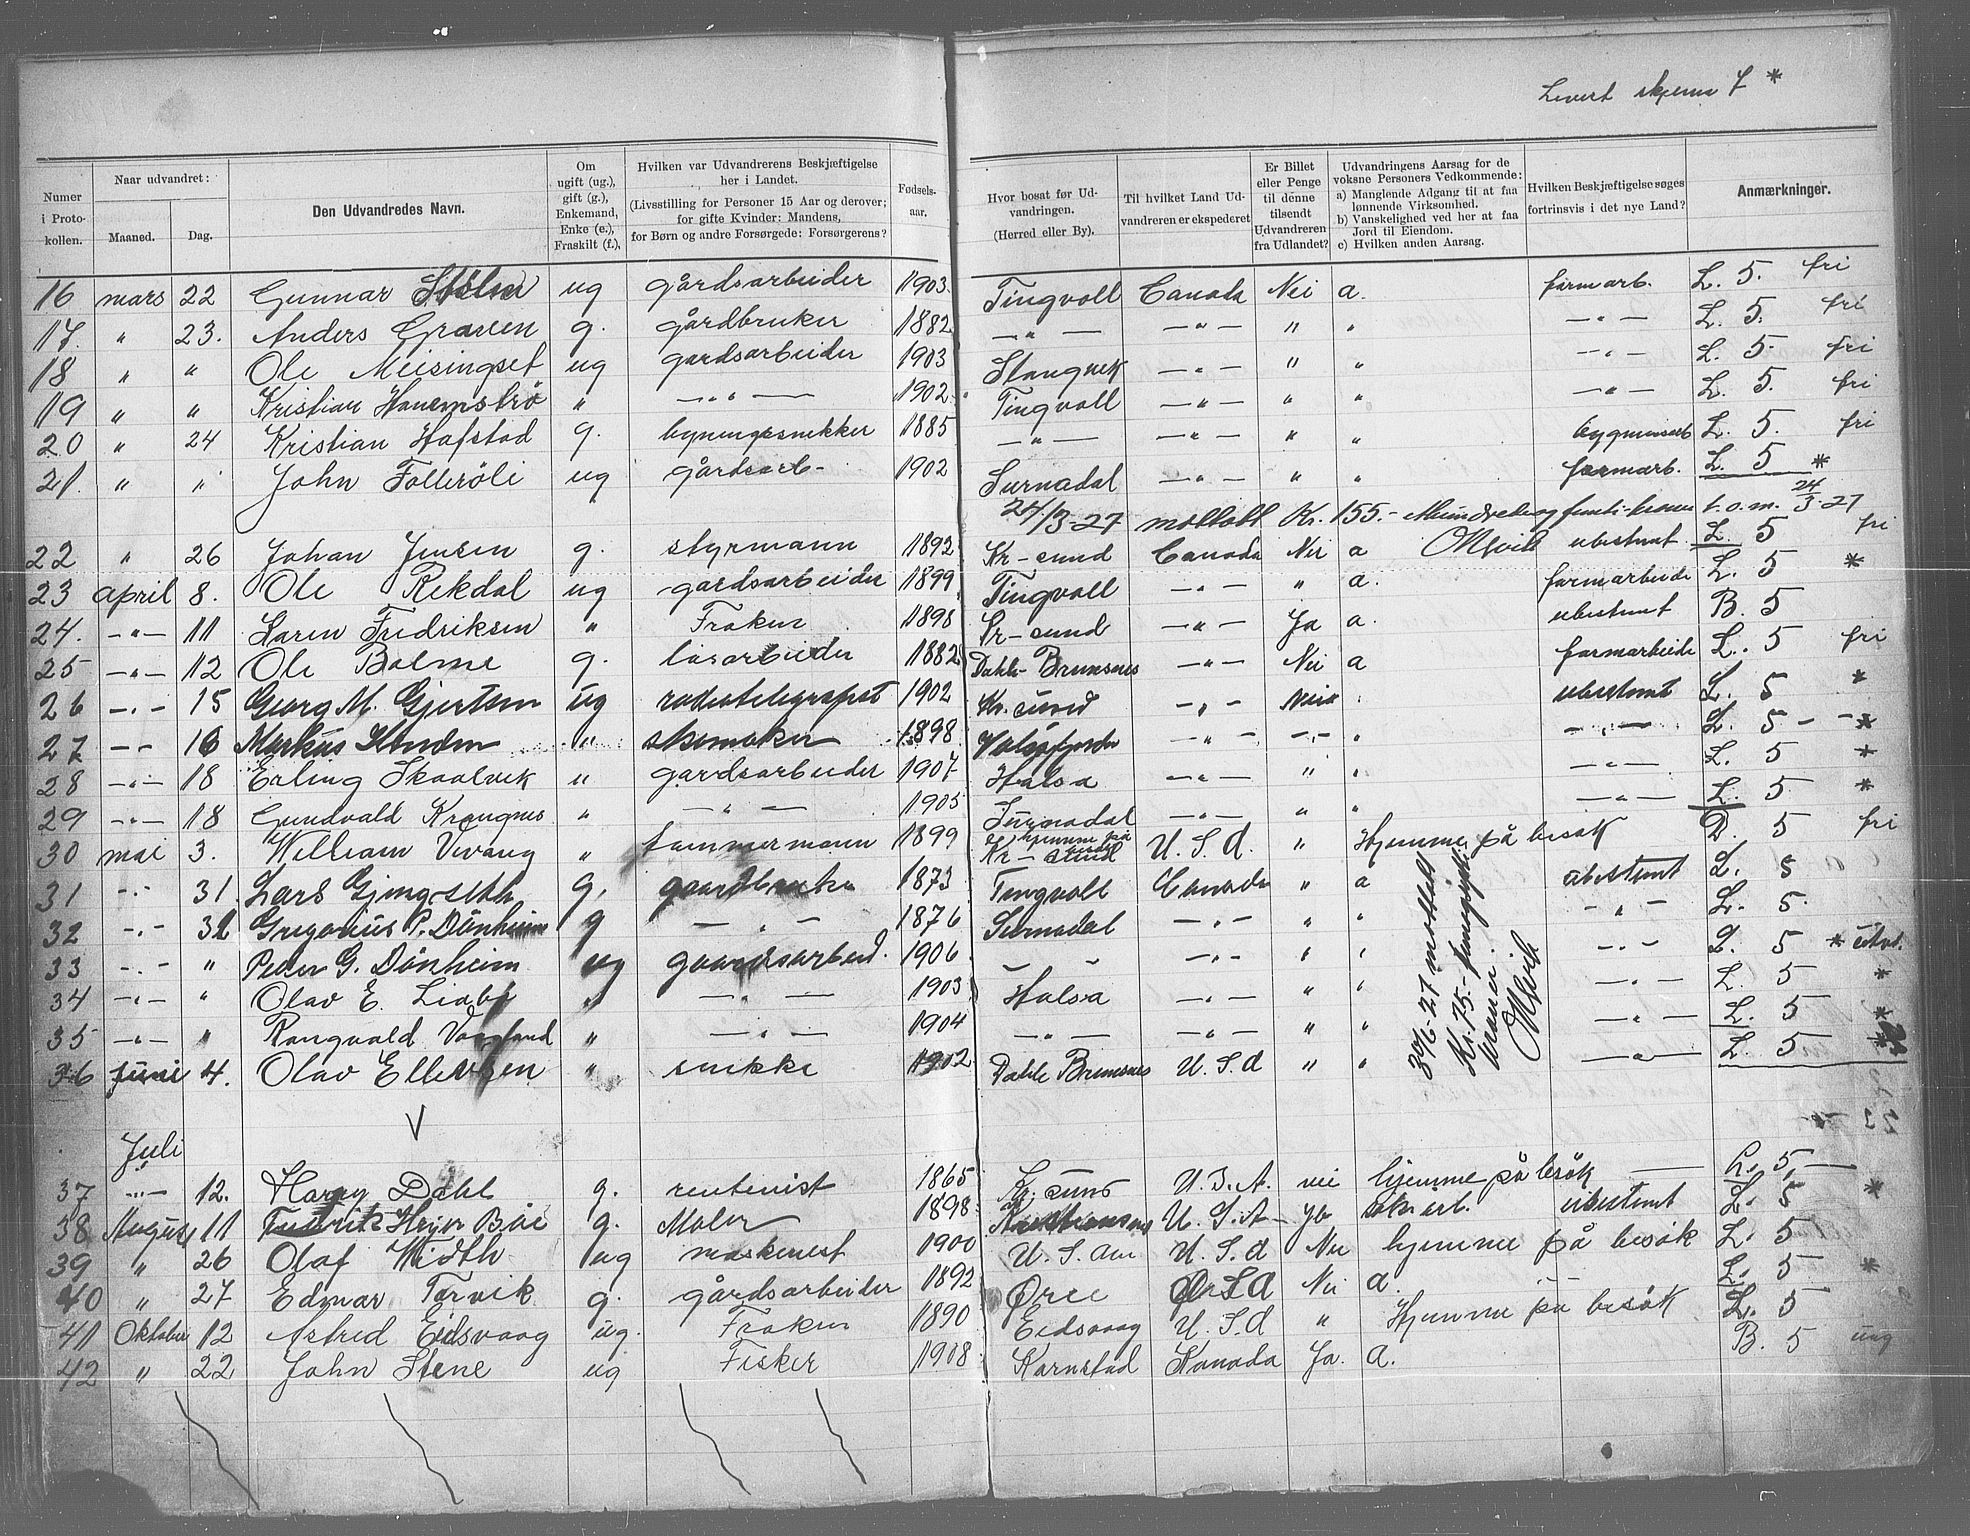 Levert skjema 7 *
Numer i Protokollen.
Naar udvandret:
Maaned.
Dag.
Den Udvandredes Navn.
Om ugift (ug.), gift (g.), Enkemand, Enke (e.), Fraskilt (f.),
Hvilken var Udvandrerens Beskjæftigelse her i Landet. (Livsstilling for Personer 15 Aar og derover; for gifte Kvinder: Mandens, for Børn og andre Forsørgede: Forsørgerens?
Fødselsaar.
Hvor bosat før Udvandringen. (Herred eller By).
Til hvilket Land Udvandreren er ekspederet
Er Billet eller Penge til denne tilsendt Udvandreren fra Udlandet?
Udvandringens Aarsag for de voksne Personers Vedkommende: a) Manglende Adgang til at faa lønnende Virksomhed. b) Vanskelighed ved her at faa Jord til Eiendom. c) Hvilken anden Aarsag.
Hvilken Beskjæftigelse søges fortrinsvis i det nye Land?
Anmærkninger.
16 mars 22 Gunnar ug gårdsarbeider 1903 Tingvoll Canada Nei a. farmarb. L. 5. fri
17. " 23. Anders Graven g. gårdbruker 1882 -"- -"- " " -"- L. 5. fri
18 " " Ole Meisingset ug gardsarbeider 1903 Stangvik -"- " " -"- L. 5. fri
19 " " Kristian Hanemstrø " -"- 1902 Tingvoll -"- " " -"- L. 5. fri
20 " 24 Kristian Hafstad g. bygningssnekker 1885 -"- -"- " " L. 5. fri
21. " " John Follerøli ug gårdsarb- 1902 Surnadal -"- " " farmarb. L. 5 *
24/3-27 mottatt Kr. 155.- t.o.m. 24/3-27
22 " 26 Johan Jensen g. styrmann 1892 Kr-sund Canada Nei a ubestemt L. 5 fri
23 april 8. Ole Rekdal ug gardsarbeider 1899 Tingvoll -"- " a. farmarbeide L. 5 *
24. -"- 11 Karen Fredriksen " Frøken 1898 Kr-sund -"- Ja a. ubestemt B. 5
25 -"- 12 Ole Bolme g. løsarbeider 1882 Dahle-Bremsnes -"- Nei a farmarbeide L. 5 fri
26 -"- 15 Georg M. Gjertsen ug radiotelegrafist 1902 Kr. sund -"- Nei ubestemt L. 5 *
27 -"- 16 Markus " skomaker 1898 Valsøfjorden -"- -"- " -"- L. 5 - - *
28 -"- 18 Erling Skaalvik " gardsarbeider 1907 Halsa -"- " " -"- L. 5 *
29 -"- 18 Gundvald Krangnes " -"- 1905 Surnadal -"- " " -"- L. 5 *
30 mai 3. William Vevang " tømmermann 1899 Kr-sund U.S.A. " Hjemme på besøk D. 5 fri
31 -"- 31. Lars Gjengseth g. gaardbruker 1873 Tingvoll Canada " a ubestemt L. 5
32 -"- 31 Gregorius P. Dönheim g - " - 1876 Surnadal -"- " " -"- L. 5.
33 -"- " Peder G. Dönheim ug gaardsarbeid. 1906 - - -"- " " -"- L. 5 * utvl.
34 -"- " Olav E. Liabø " -"- 1903 Halsa -"- " " -"- L. 5 *
35 -"- " Rangvald Vaagland " -"- 1904 -"- -"- " " -"- L. 5 *
36 juni 4. Olav Ellevsen " snikke 1902 Dahle Bremsnes U.S.A " " -"- L. 5
30/6-27 mottatt
Kr. 75.-
kroner.
V
Juli
37 -"- 12. Harry Dahl g. rentenist 1865 Kr. sund U.S.A. nei hjemme på besøk — L. 5. —
38 August 11 Fredrik Heyer Böe g. Maler 1898 Kristiansund U.S.A - Ja ubestemt L. 5 *
39 " 26 Olaf Width ug maskinist 1900 U.S. Am U.S.A Nei hjemme på besøk L. 5
40 " 27 Edmar Torvik g. gårdsarbeider 1892 Øre U.S.A Nei a. L. 5 *
41 Oktober 12 Astrid Eidsvaag ug. Frøken 1890 Eidsvaag U.S.A " Hjemme på besøk L. 5
42 " 22 John Stene ug Fisker 1908 Kornstad Kanada Ja. a. B. 5 ung